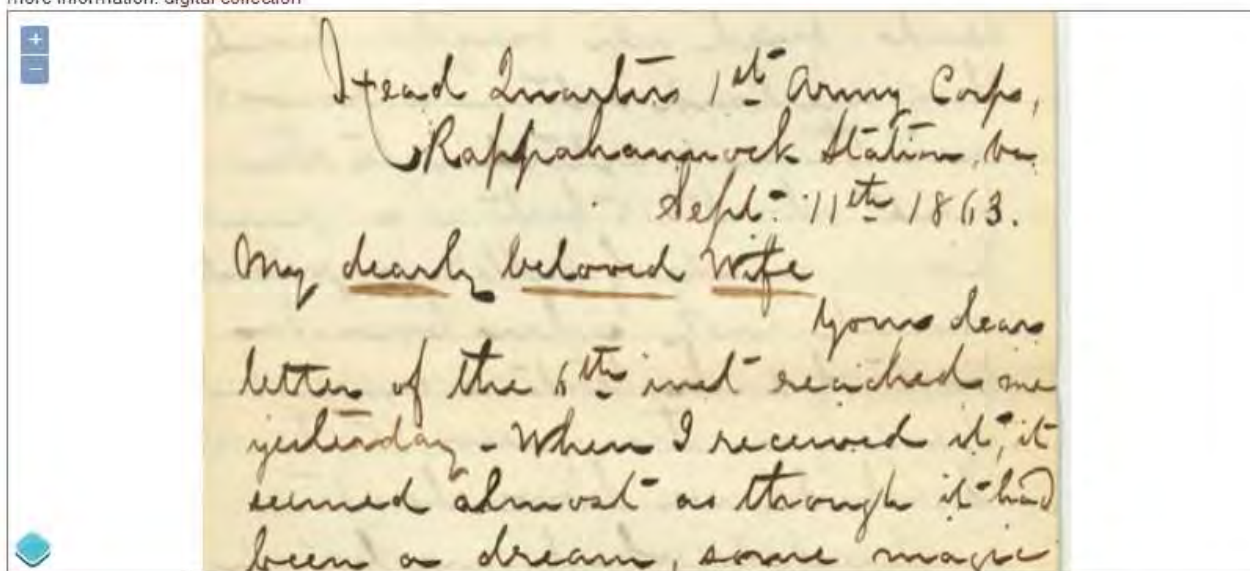 more information: digital collection
+
−
Head Quarters 1st Army Corps,
Rappahannock Station, Va
Sept. 11th 1863.
My dearly beloved Wife
Your dear
letter of the 6th inst reached me
yesterday - When I received it, it
seemed almost as though it had
been a dream, some magic